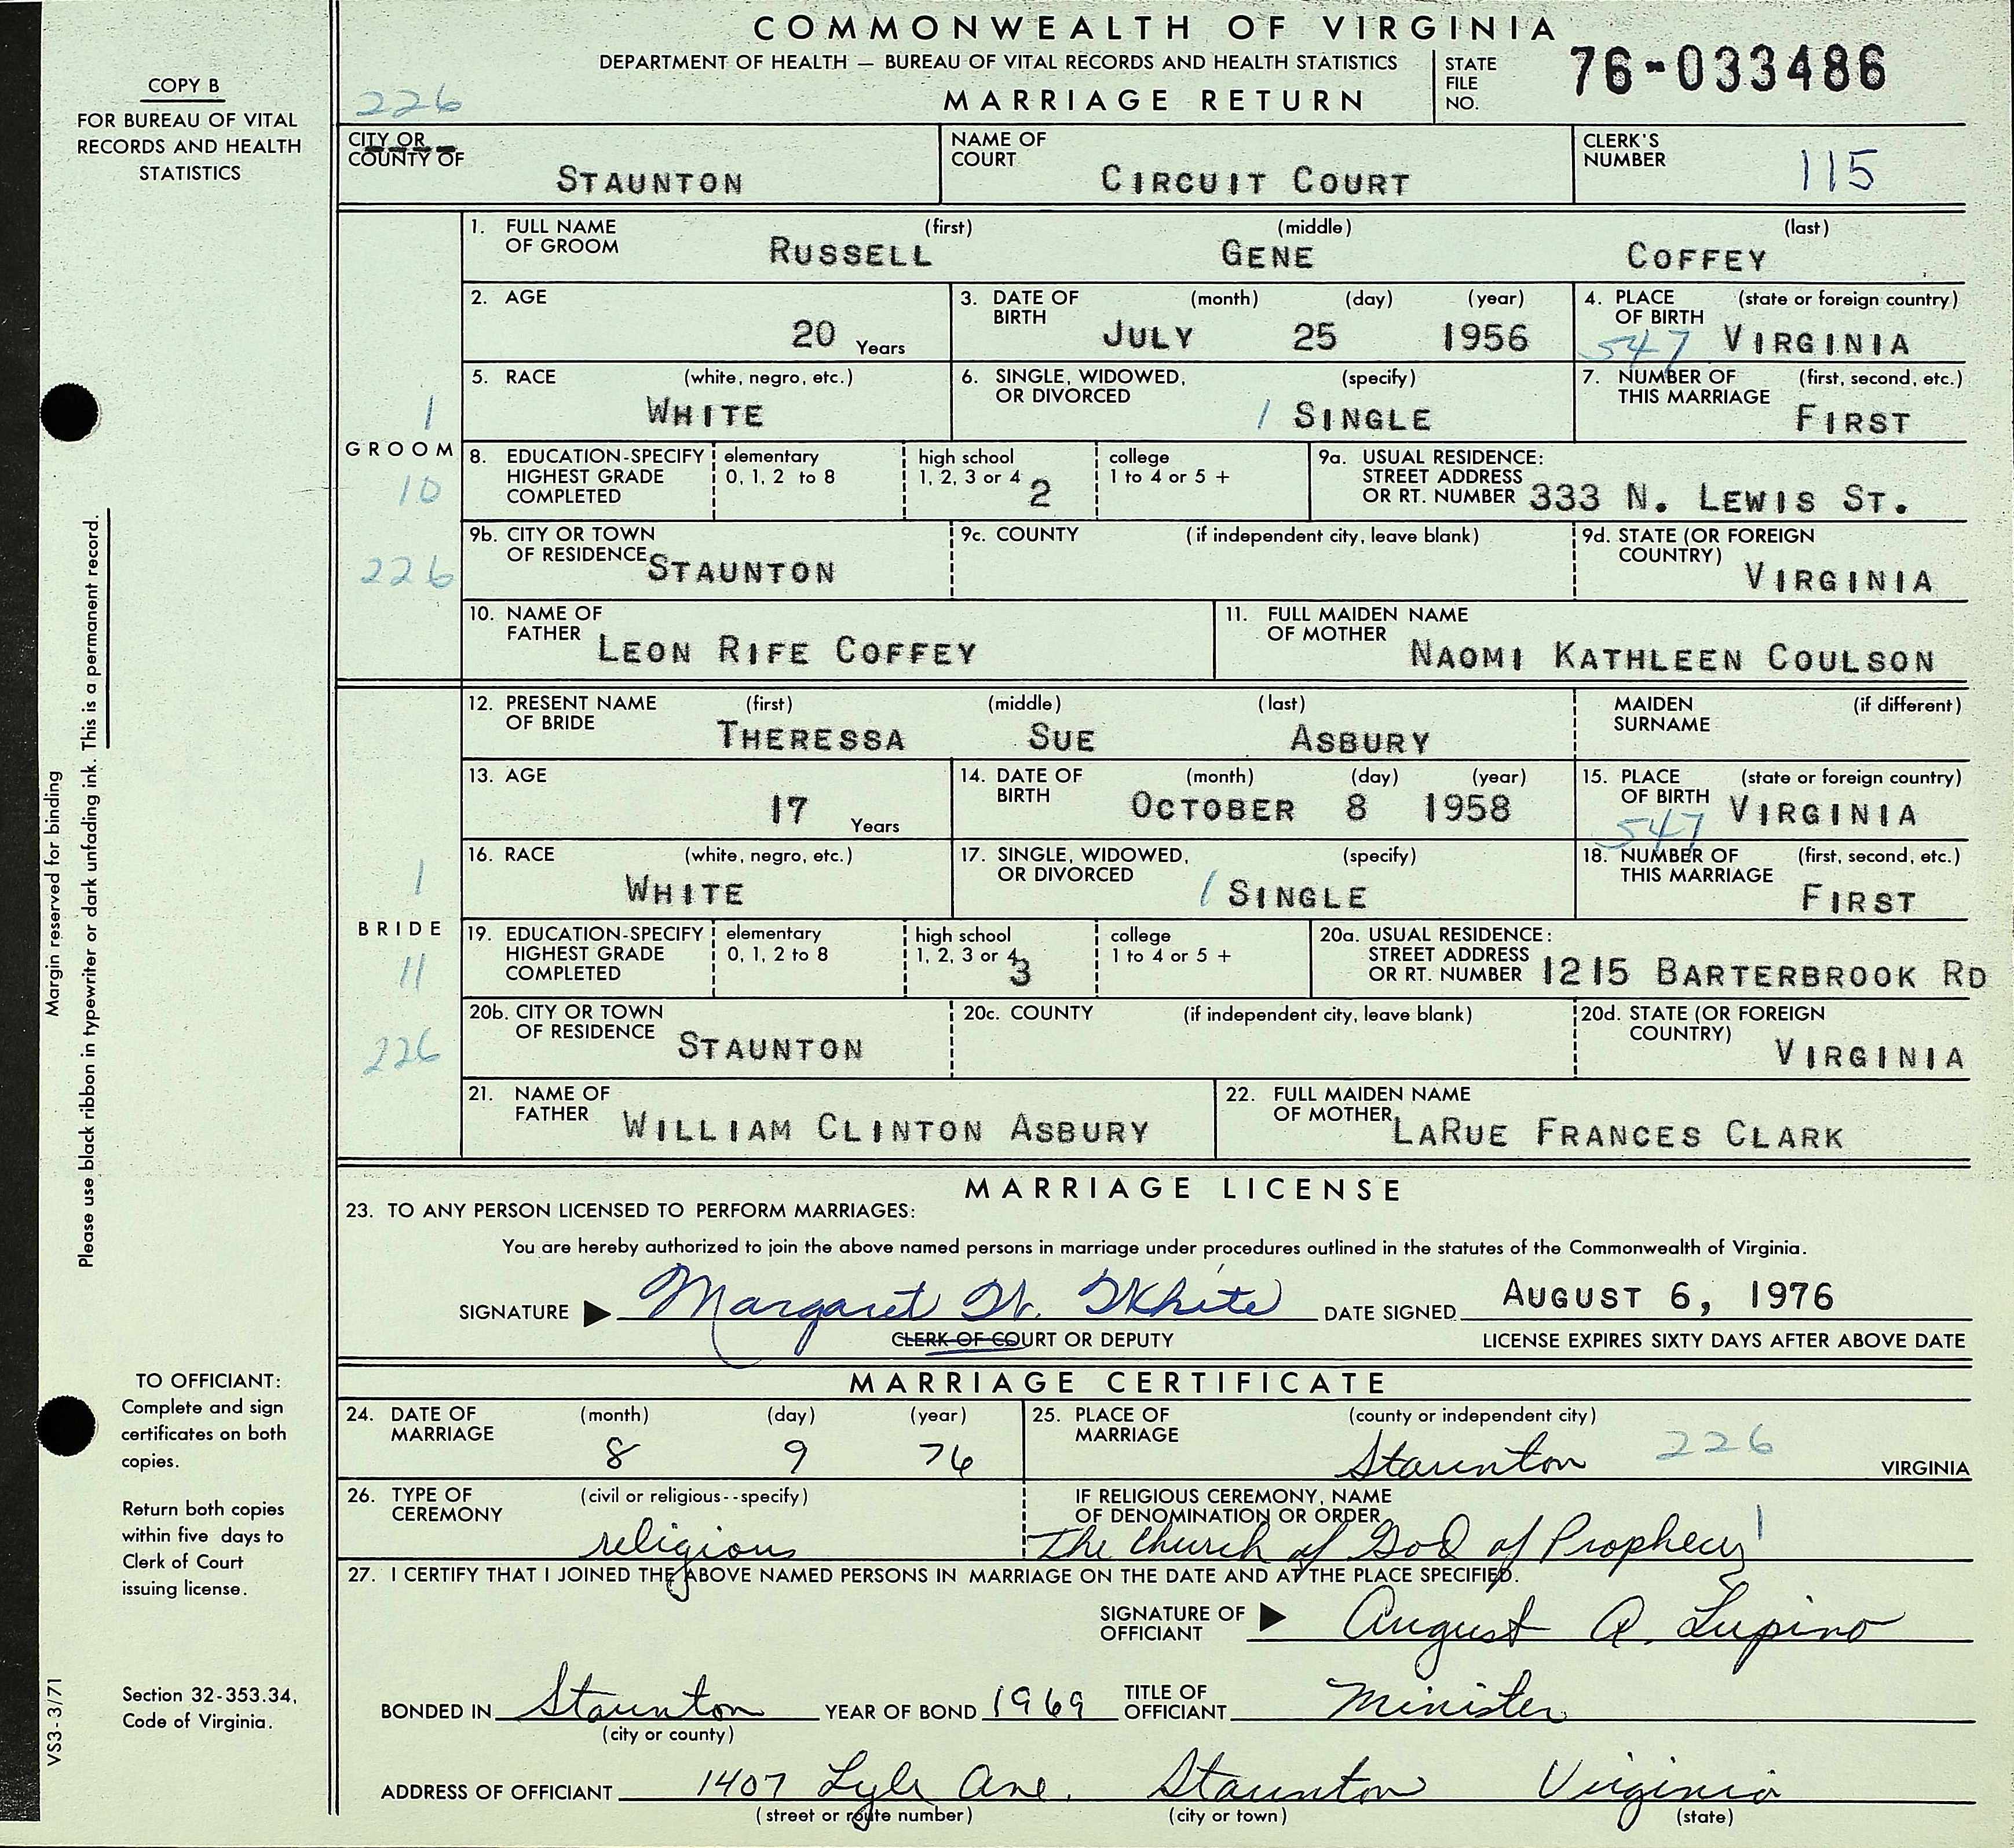 COMMONWEALTH OF VIRGINIA
DEPARTMENT OF HEALTH — BUREAU OF VITAL RECORDS AND HEALTH STATISTICS
MARRIAGE RETURN
STATE FILE NO. 76-033486
COPY B
FOR BUREAU OF VITAL
RECORDS AND HEALTH
STATISTICS
226
CITY OR COUNTY OF STAUNTON
NAME OF COURT CIRCUIT COURT
CLERK'S NUMBER 115
1. FULL NAME OF GROOM (first) RUSSELL (middle) GENE (last) COFFEY
2. AGE 20 Years
3. DATE OF BIRTH (month) JULY (day) 25 (year) 1956
4. PLACE OF BIRTH (state or foreign country) 547 VIRGINIA
5. RACE (white, negro, etc.) WHITE
6. SINGLE, WIDOWED, OR DIVORCED (specify) 1 SINGLE
7. NUMBER OF THIS MARRIAGE (first, second, etc.) FIRST
1
GROOM
10
226
8. EDUCATION-SPECIFY HIGHEST GRADE COMPLETED
elementary 0, 1, 2 to 8
high school 1, 2, 3 or 4 2
college 1 to 4 or 5 +
9a. USUAL RESIDENCE: STREET ADDRESS OR RT. NUMBER 333 N. LEWIS ST.
9b. CITY OR TOWN OF RESIDENCE STAUNTON
9c. COUNTY (if independent city, leave blank)
9d. STATE (OR FOREIGN COUNTRY) VIRGINIA
10. NAME OF FATHER LEON RIFE COFFEY
11. FULL MAIDEN NAME OF MOTHER NAOMI KATHLEEN COULSON
12. PRESENT NAME OF BRIDE (first) THERESSA (middle) SUE (last) ASBURY
MAIDEN SURNAME (if different)
13. AGE 17 Years
14. DATE OF BIRTH (month) OCTOBER (day) 8 (year) 1958
15. PLACE OF BIRTH (state or foreign country) 547 VIRGINIA
16. RACE (white, negro, etc.) WHITE
17. SINGLE, WIDOWED, OR DIVORCED (specify) 1 SINGLE
18. NUMBER OF THIS MARRIAGE (first, second, etc.) FIRST
1
BRIDE
11
226
19. EDUCATION-SPECIFY HIGHEST GRADE COMPLETED
elementary 0, 1, 2 to 8
high school 1, 2, 3 or 4 3
college 1 to 4 or 5 +
20a. USUAL RESIDENCE: STREET ADDRESS OR RT. NUMBER 1215 BARTERBROOK RD
20b. CITY OR TOWN OF RESIDENCE STAUNTON
20c. COUNTY (if independent city, leave blank)
20d. STATE (OR FOREIGN COUNTRY) VIRGINIA
21. NAME OF FATHER WILLIAM CLINTON ASBURY
22. FULL MAIDEN NAME OF MOTHER LARUE FRANCES CLARK
MARRIAGE LICENSE
23. TO ANY PERSON LICENSED TO PERFORM MARRIAGES:
You are hereby authorized to join the above named persons in marriage under procedures outlined in the statutes of the Commonwealth of Virginia.
SIGNATURE ▶ Margaret W. White DATE SIGNED AUGUST 6, 1976
CLERK OF COURT OR DEPUTY
LICENSE EXPIRES SIXTY DAYS AFTER ABOVE DATE
MARRIAGE CERTIFICATE
24. DATE OF MARRIAGE (month) 8 (day) 9 (year) 76
25. PLACE OF MARRIAGE (county or independent city) Staunton 226 VIRGINIA
26. TYPE OF CEREMONY (civil or religious--specify) religious
IF RELIGIOUS CEREMONY, NAME OF DENOMINATION OR ORDER The Church of God of Prophecy 1
27. I CERTIFY THAT I JOINED THE ABOVE NAMED PERSONS IN MARRIAGE ON THE DATE AND AT THE PLACE SPECIFIED.
SIGNATURE OF OFFICIANT ▶ August A. Lupino
BONDED IN Staunton YEAR OF BOND 1969 TITLE OF OFFICIANT Minister
(city or county)
ADDRESS OF OFFICIANT 1407 Lyle Ave. Staunton Virginia
(street or route number) (city or town) (state)
Margin reserved for binding
Please use black ribbon in typewriter or dark unfading ink. This is a permanent record.
TO OFFICIANT:
Complete and sign
certificates on both
copies.
Return both copies
within five days to
Clerk of Court
issuing license.
Section 32-353.34,
Code of Virginia.
VS3-3/71